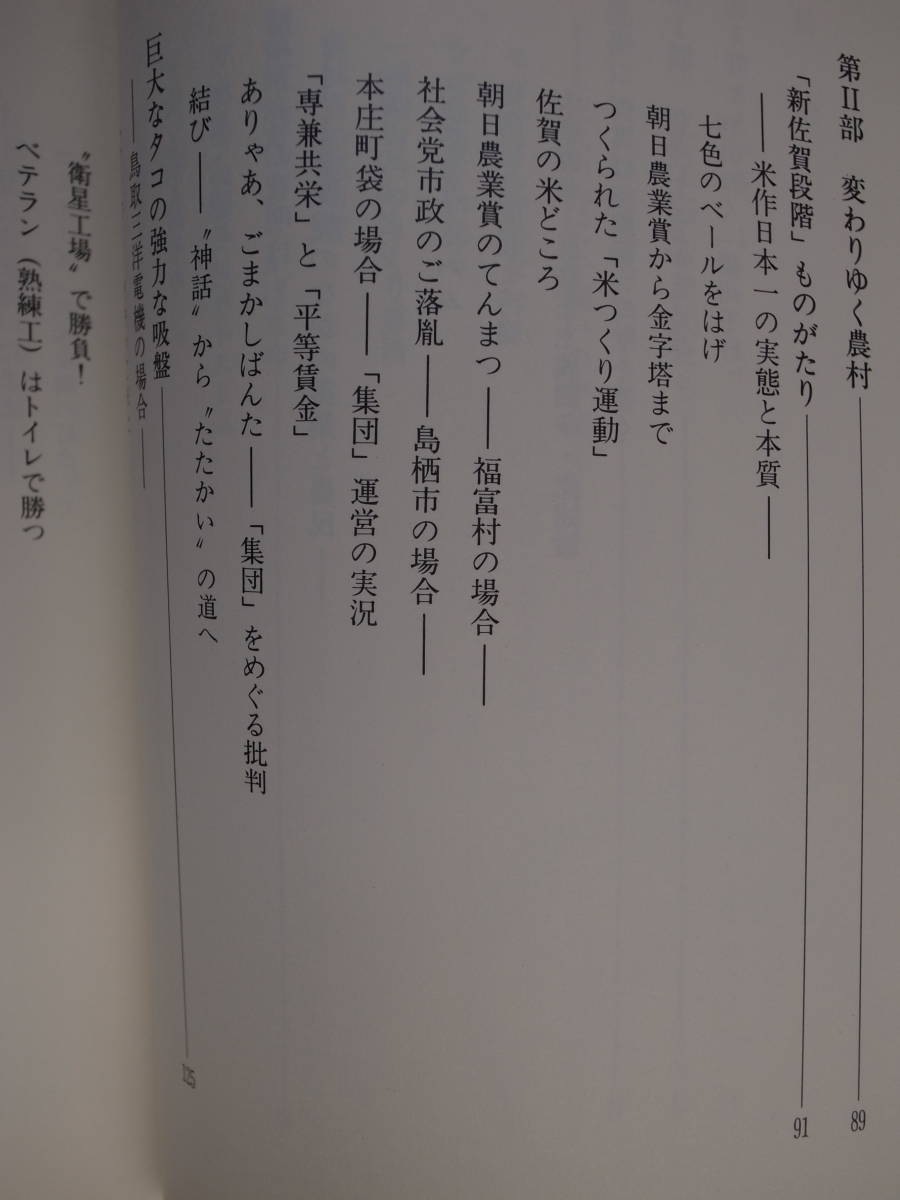 第II部　変わりゆく農村 89
「新佐賀段階」ものがたり 91
――米作日本一の実態と本質――
七色のベールをはげ
朝日農業賞から金字塔まで
つくられた「米つくり運動」
佐賀の米どころ
朝日農業賞のてんまつ――福富村の場合――
社会党市政のご落胤――島栖市の場合――
本庄町袋の場合――「集団」運営の実況
「専兼共栄」と「平等賃金」
ありゃあ、ごまかしばんた――「集団」をめぐる批判
結び――〝神話〟から〝たたかい〟の道へ
巨大なタコの強力な吸盤 125
――鳥取三洋電機の場合――
〝衛星工場〟で勝負！
ベテラン（熟練工）はトイレで勝つ